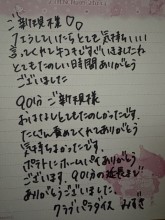 ご新規様♡♡
てとても気持ちいい
ってくれてキスもすごくしましたね
とてもたのしい時間ありがとう
ございました
90分 ご新規様
おはなしとてもたのしかったです。
たくさん褒めてくれてありがとう
気持ちよかったです。
ポテトにホームパイありがとう
ございます。90分の延長まで
ありがとうございました。
クラブパラダイス みすず